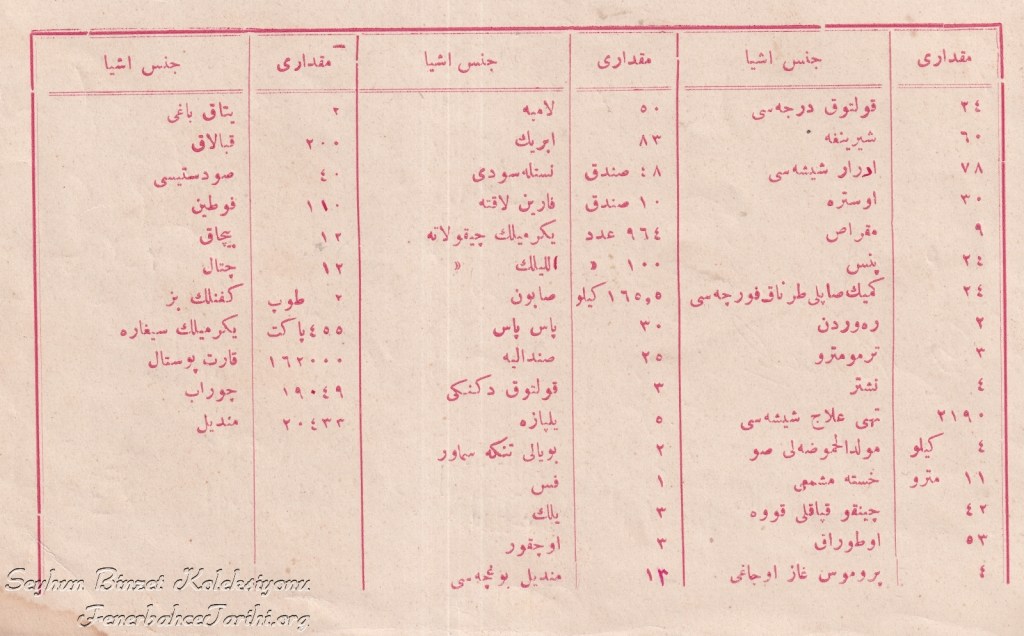 مقداری جنس اشیا مقداری جنس اشیا مقداری جنس اشیا
٢٤ قولتوق درجه‌سی ٥٠ لامبه ٢ یتاق باغی
٦٠ شیرینغه ٨٣ ابریك ٢٠٠ قبالاق
٧٨ ادرار شیشه‌سی ٤٨ صندق نستله سودی ٤٠ صودستیسی
٣٠ اوستره ١٠ صندق فارین لاقته ١١٠ فوطین
٩ مقراص ٩٦٤ عدد یكرمیلك چیقولاته ١٢ بیچاق
٢٤ پنس ١٠٠ » اللیلك » ١٢ چتال
٢٤ كمیك صاپلی طرناق فورچه‌سی ١٦٥,٥ كیلو صابون ٢ طوپ كفنلك بز
٢ ره‌وردن ٣٠ پاس پاس ٤٥٥ پاكت یكرمیلك سیغاره
٣ ترمومترو ٢٥ صندالیه ١٦٢٠٠٠ قارت پوستال
٤ نشتر ٣ قولتوق دكنكی ١٩٠٤٩ چوراب
٢١٩٠ تهی علاج شیشه‌سی ٥ یلپازه ٢٠٤٣٣ مندیل
٤ كیلو مولدالحموضه‌لی صو ٢ بویالی تنكه سماور
١١ مترو خسته مشمعی ١ فس
٤٢ چینقو قپاقلی قووه ٣ یلك
٥٣ اوطوراق ٣ اوچقور
٤ پروموس غاز اوجاغی ١٣ مندیل بوغچه‌سی
Seyhun Binzet Koleksiyonu
FenerbahceTarihi.org